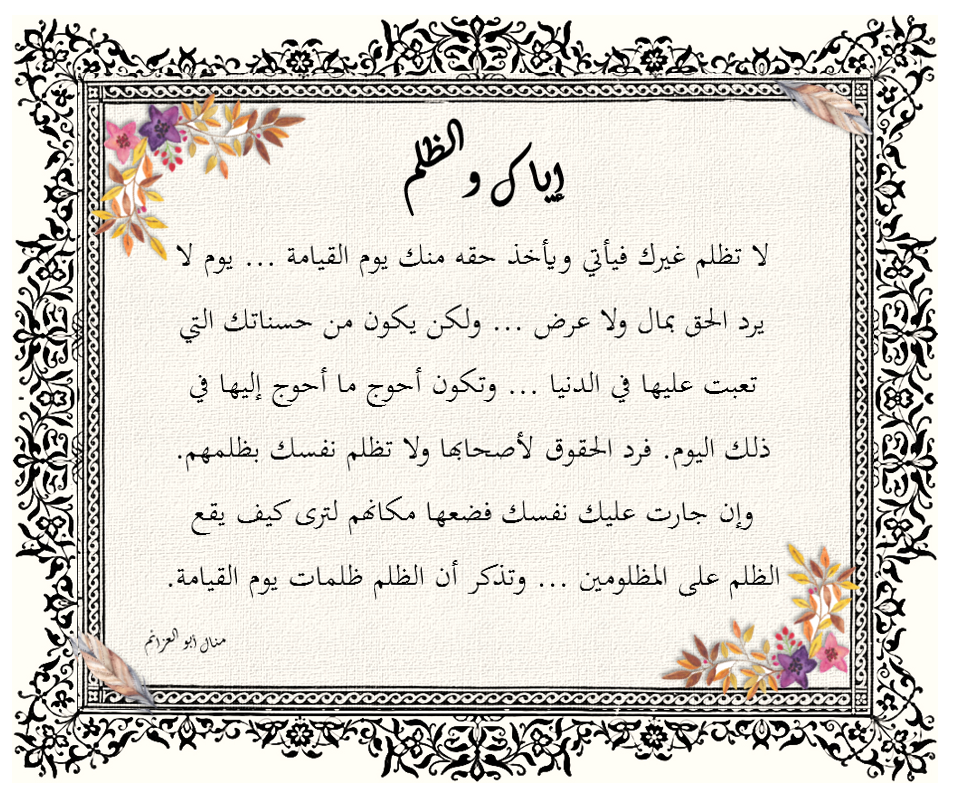 إياك والظلم
لا تظلم غيرك فيأتي ويأخذ حقه منك يوم القيامة ... يوم لا
يرد الحق بمال ولا عرض ... ولكن يكون من حسناتك التي
تعبت عليها في الدنيا ... وتكون أحوج ما أحوج إليها في
ذلك اليوم. فرد الحقوق لأصحابها ولا تظلم نفسك بظلمهم.
وإن جارت عليك نفسك فضعها مكانهم لترى كيف يقع
الظلم على المظلومين ... وتذكر أن الظلم ظلمات يوم القيامة.
منال أبو العزائم